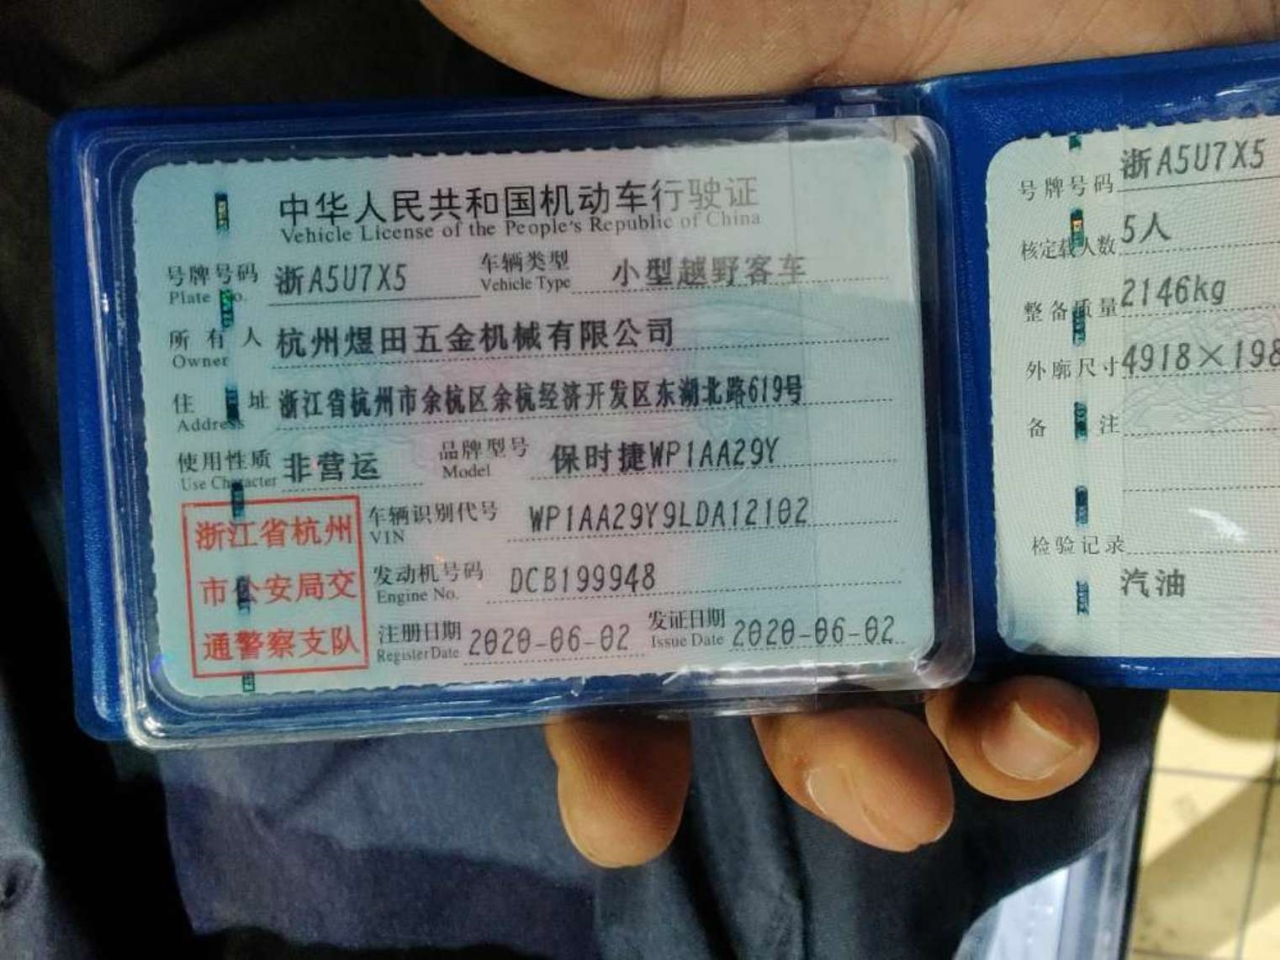 中华人民共和国机动车行驶证
Vehicle License of the People's Republic of China
号牌号码 浙A5U7X5 车辆类型 小型越野客车
Plate No. Vehicle Type
所有人 杭州煜田五金机械有限公司
Owner
住址 浙江省杭州市余杭区余杭经济开发区东湖北路619号
Address
使用性质 非营运 品牌型号 保时捷WP1AA29Y
Use Character Model
浙江省杭州
市公安局交
通警察支队
车辆识别代号 WP1AA29Y9LDA12102
VIN
发动机号码 DCB199948
Engine No.
注册日期 2020-06-02 发证日期 2020-06-02
Register Date Issue Date
号牌号码 浙A5U7X5
核定载人数 5人
整备质量 2146kg
外廓尺寸 4918×198
备注
检验记录
汽油